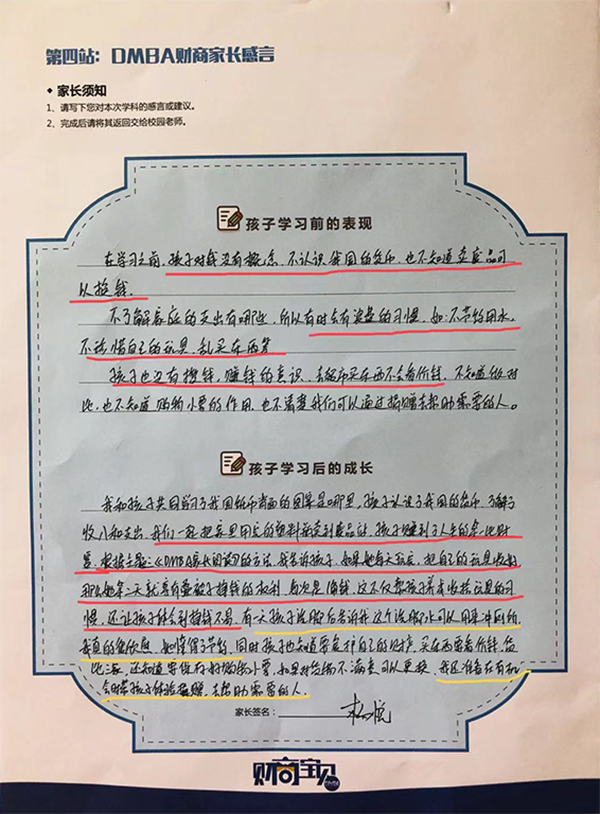 第四站：DMBA财商家长感言
◆ 家长须知
1、请写下您对本次学科的感言或建议。
2、完成后请将其返回交给校园老师。
孩子学习前的表现
在学习之前，孩子对钱没有概念，不认识我国的货币，也不知道卖废品可
以挣钱。
不了解家庭的支出有哪些，所以有时会有浪费的习惯，如：不节约用水，
不珍惜自己的玩具，乱买东西等
孩子也没有挣钱，赚钱的意识，去超市买东西不会看价钱，不知道做对
比，也不知道购物小票的作用，也不清楚我们可以通过捐赠去帮助需要的人。
孩子学习后的成长
我和孩子共同学习了我国货币背面的图案是哪里，孩子认识了我国的货币，了解了
收入和支出，我们一起把家里用完的塑料瓶卖到废品站，孩子赚到了人生的第一比财
富，根据主题：《DMBA家长阅读》的方法，我告诉孩子，如果她每天玩完，把自己的玩具收好，
那么她第二天就享有叠被子挣钱的权利，每次是1角钱，这不仅帮孩子养成收拾玩具的习
惯，还让孩子体会到挣钱不易，有一天孩子洗脚后告诉我这个洗脚水可以用来冲厕所，
我真的很欣慰，她懂得了节约，同时孩子也知道要保护自己的财产，买东西要看价钱，货
比三家，还知道要保存好购物小票，如果对货物不满意可以更换，我还准备在有机
会时带孩子体验捐赠，去帮助需要的人。
家长签名：
财商宝贝